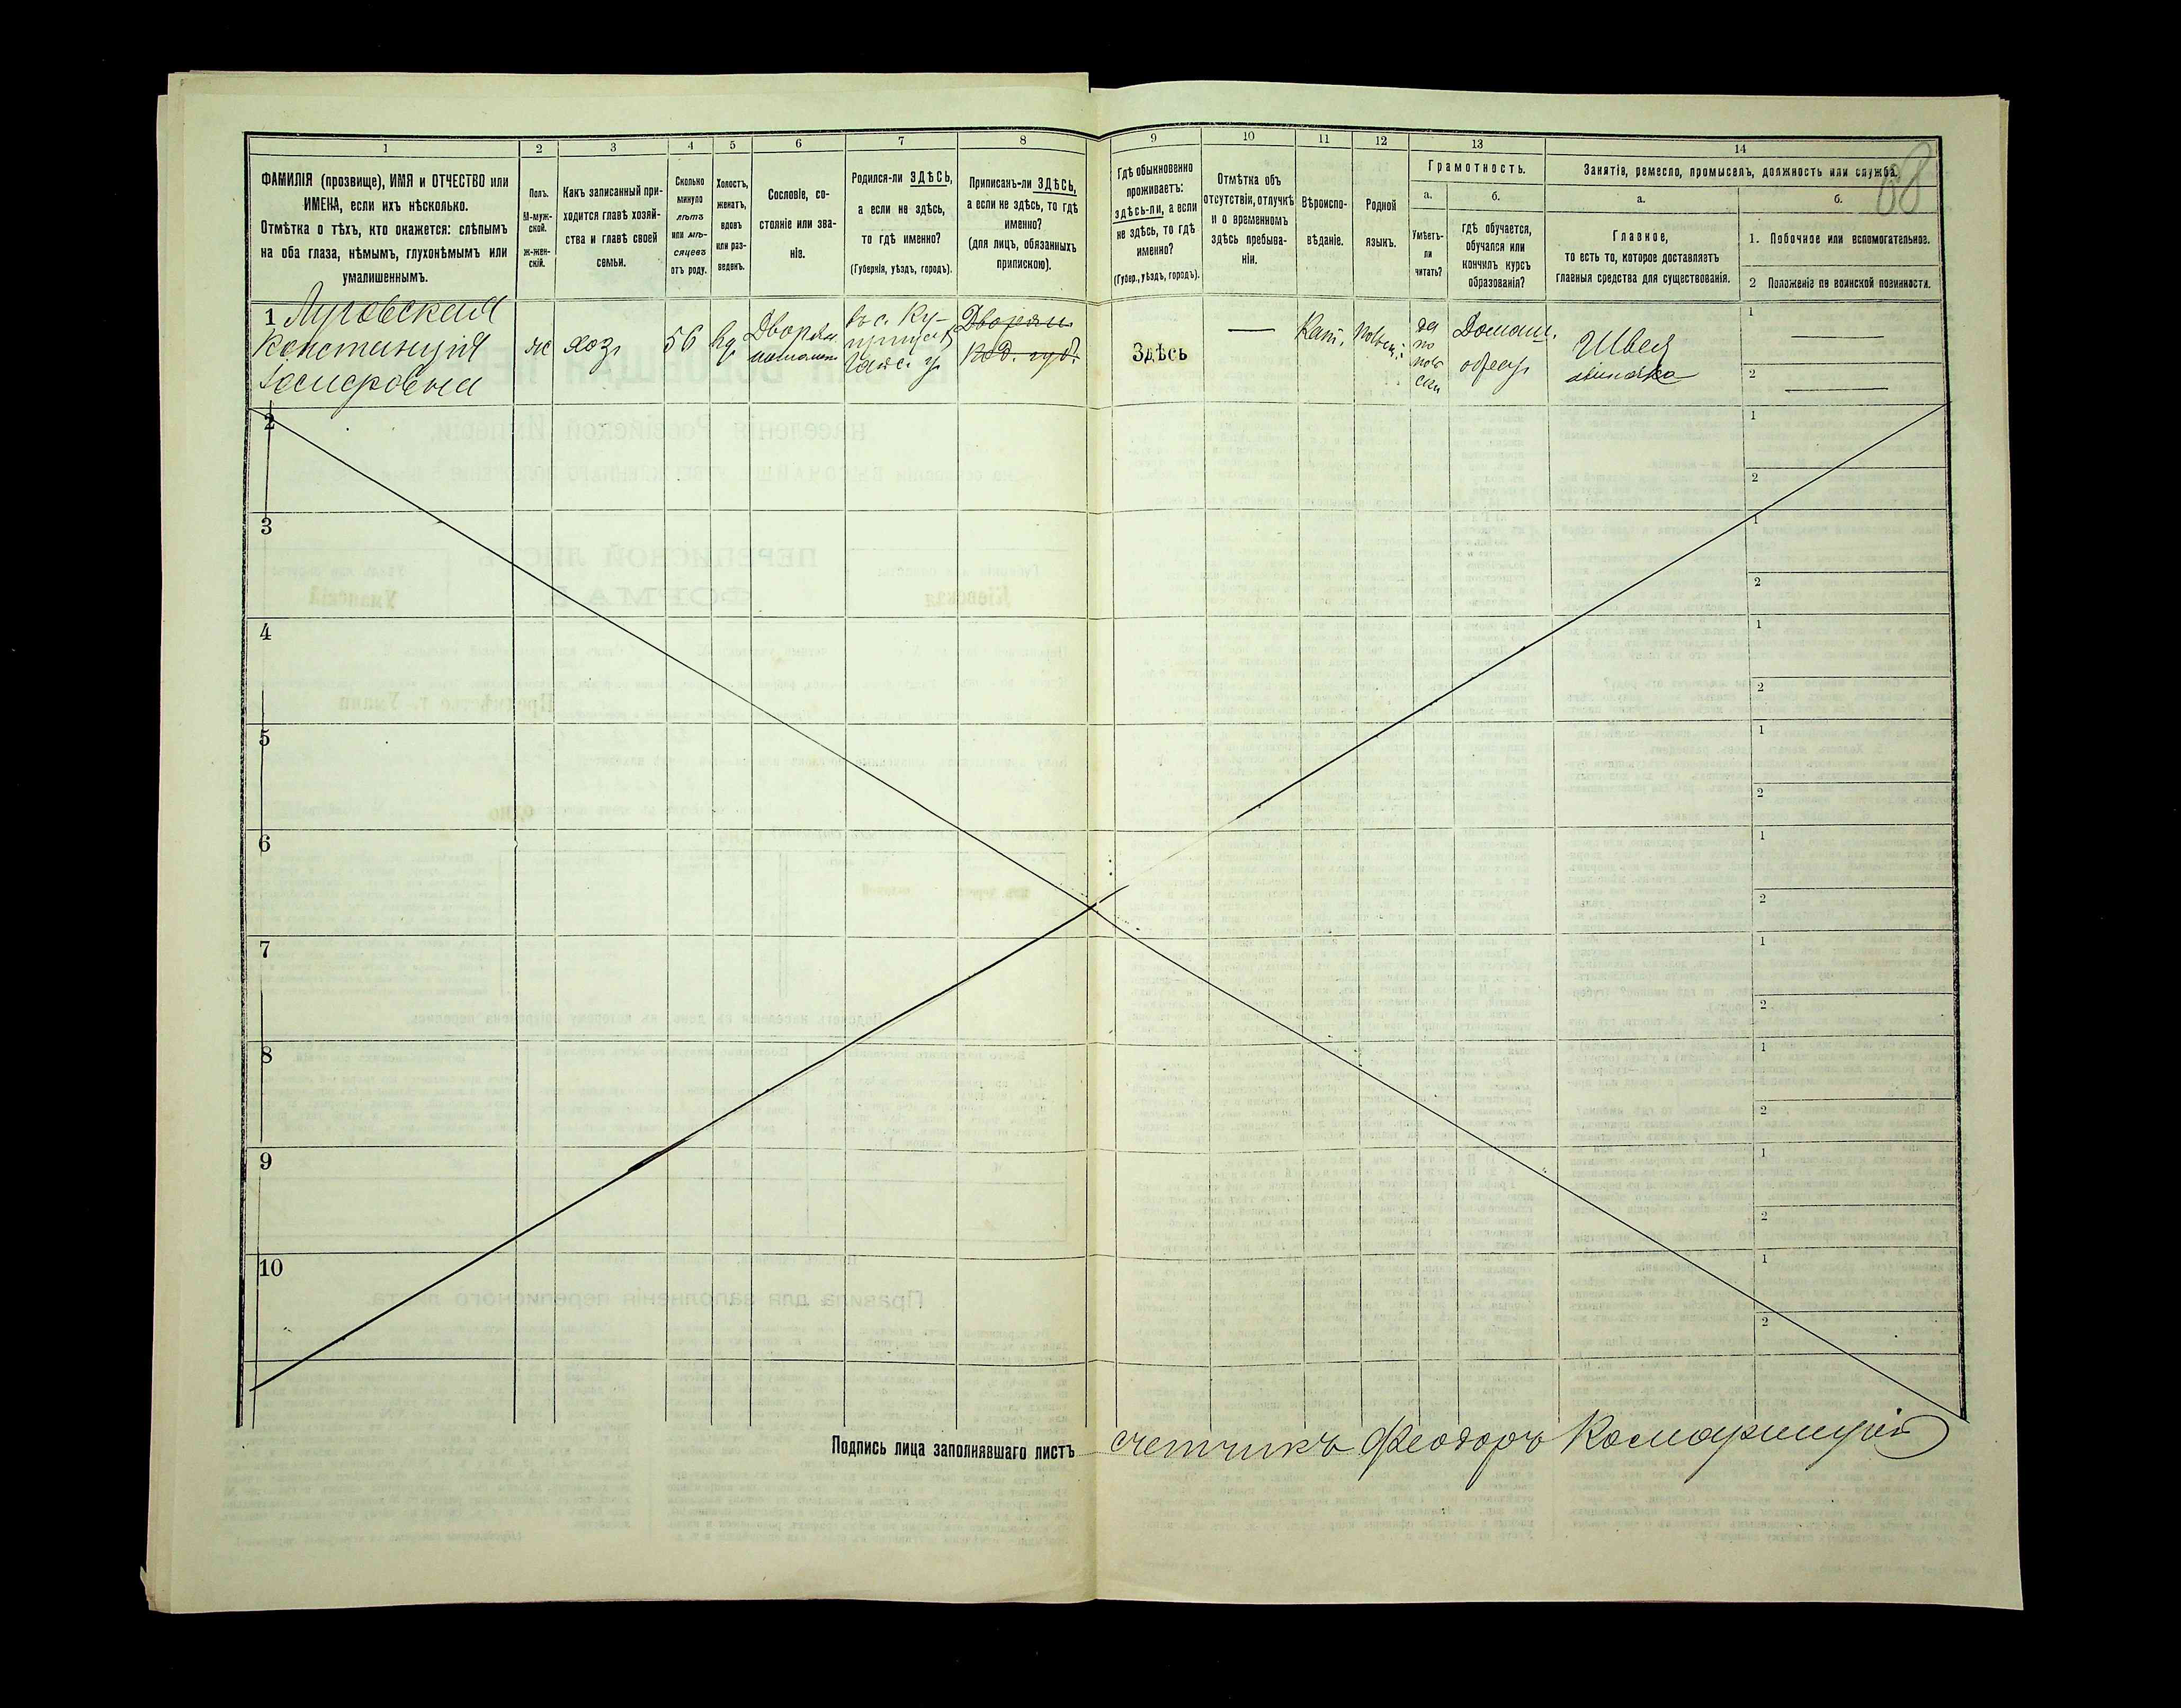 1
2
3
4
5
6
7
8
ФАМИЛІЯ (прозвище), ИМЯ и ОТЧЕСТВО или
ИМЕНА, если ихъ нѣсколько.
Отмѣтка о тѣхъ, кто окажется: слѣпымъ
на оба глаза, нѣмымъ, глухонѣмымъ или
умалишеннымъ.
Полъ.
М-муж-
ской.
ж-жен-
скій.
Какъ записанный при-
ходится главѣ хозяй-
ства и главѣ своей
семьи.
Сколько
минуло
лѣтъ
или мѣ-
сяцевъ
отъ роду.
Холостъ,
женатъ,
вдовъ
или раз-
веденъ.
Сословіе, со-
стояніе или зва-
ніе.
Родился-ли ЗДѢСЬ,
а если не здѣсь,
то гдѣ именно?
(Губернія, уѣздъ, городъ).
Приписанъ-ли ЗДѢСЬ,
а если не здѣсь, то гдѣ
именно?
(для лицъ, обязанныхъ
припискою).
9
10
11
12
13
14
Гдѣ обыкновенно
проживаетъ:
здѣсь-ли, а если
не здѣсь, то гдѣ
именно?
(Губер., уѣздъ, городъ).
Отмѣтка объ
отсутствіи, отлучкѣ
и о временномъ
здѣсь пребыва-
ніи.
Вѣроиспо-
вѣданіе.
Родной
языкъ.
Грамотность.
а.
б.
Умѣетъ-
ли
читать?
гдѣ обучается,
обучался или
кончилъ курсъ
образованія?
Занятія, ремесло, промыселъ, должность или служба.
68
а.
б.
Главное,
то есть то, которое доставляетъ
главныя средства для существованія.
1. Побочное или вспомогательное.
2 Положеніе по воинской повинности.
1 Луговская
Констанція
ж
хоз.
56
Дворян.
Дворян.
Под. губ.
Здѣсь
Кат.
да
по
Домаш.
Швея
1
2
2
1
2
3
1
2
4
1
2
5
1
2
6
1
2
7
1
2
8
1
2
9
1
2
10
1
2
Подпись лица заполнявшаго листъ
счетчикъ Феодоръ Комарницкій